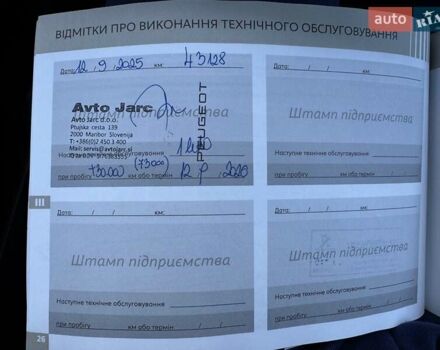 auto RIA
ВІДМІТКИ ПРО ВИКОНАННЯ ТЕХНІЧНОГО ОБСЛУГОВУВАННЯ
Дата: 12.9.2025 км: 43128
Avto Jarc
Avto Jarc d.o.o.
Ptujska cesta 139
2000 Maribor Slovenija
T: +386(0)2 450 3 400
Mail: servis@avtojarc.si
PEUGEOT
Штамп підприємства
Наступне технічне обслуговування
(73000)
при пробігу +30000 км або термін
Дата: / / км:
Штамп підприємства
Наступне технічне обслуговування
при пробігу км або термін / /
III
Дата: / / км:
Штамп підприємства
Наступне технічне обслуговування
при пробігу км або термін / /
Дата: / / км:
Штамп підприємства
Наступне технічне обслуговування
при пробігу км або термін / /
26